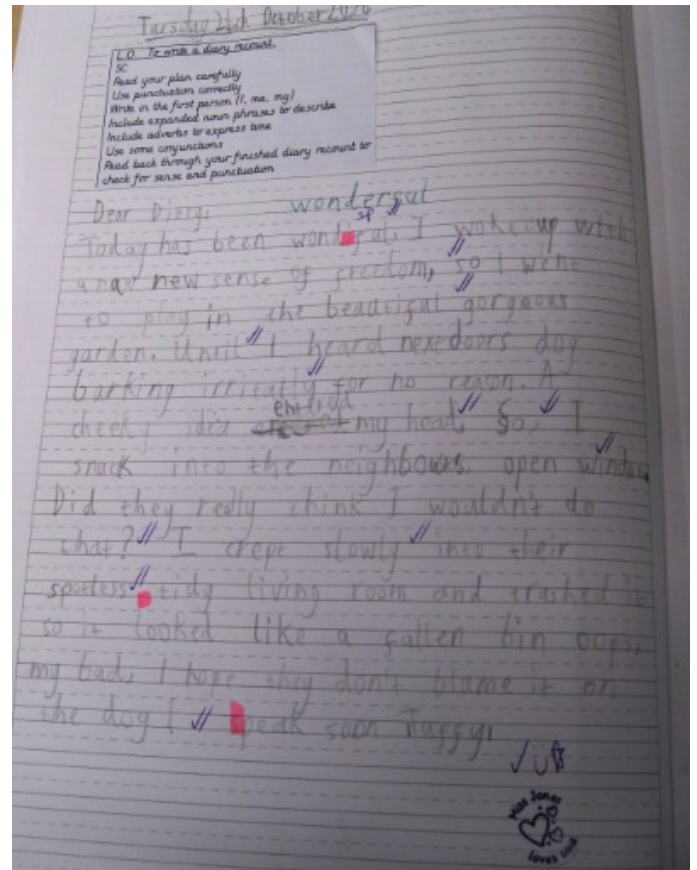 Tuesday October 2020
L.O. To write a diary recount.
SC
Read your plan carefully
Use punctuation correctly
Write in the first person (I, me, my)
Include expanded noun phrases to describe
Include adverbs to express time
Use some conjunctions
Read back through your finished diary recount to
check for sense and punctuation
Dear Diary,
wonderful
sp
Today has been I woke up with
a new sense of freedom, so I went
to play in the beautiful gorgeous
garden. Until I heard nexedoors dog
barking for no reason. A
cheeky idia my head, So, I
snuck into the neighbours open window.
Did they really think I wouldn't do
that? I crept slowly into their
spotless tidy living room and trashed it
so it looked like a fallen bin oops,
my bad, I hope they don't blame it on
the dog! Speak soon Tuffy!
Miss Jones
loves this